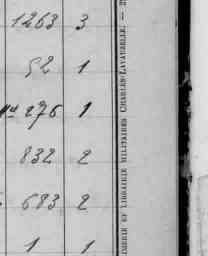 1263 3
52 1
276 1
832 2
683 2
1 1
IMERIE ET LIBRAIRIE MILITAIRES CHARLES-LAVAUZELLE. —